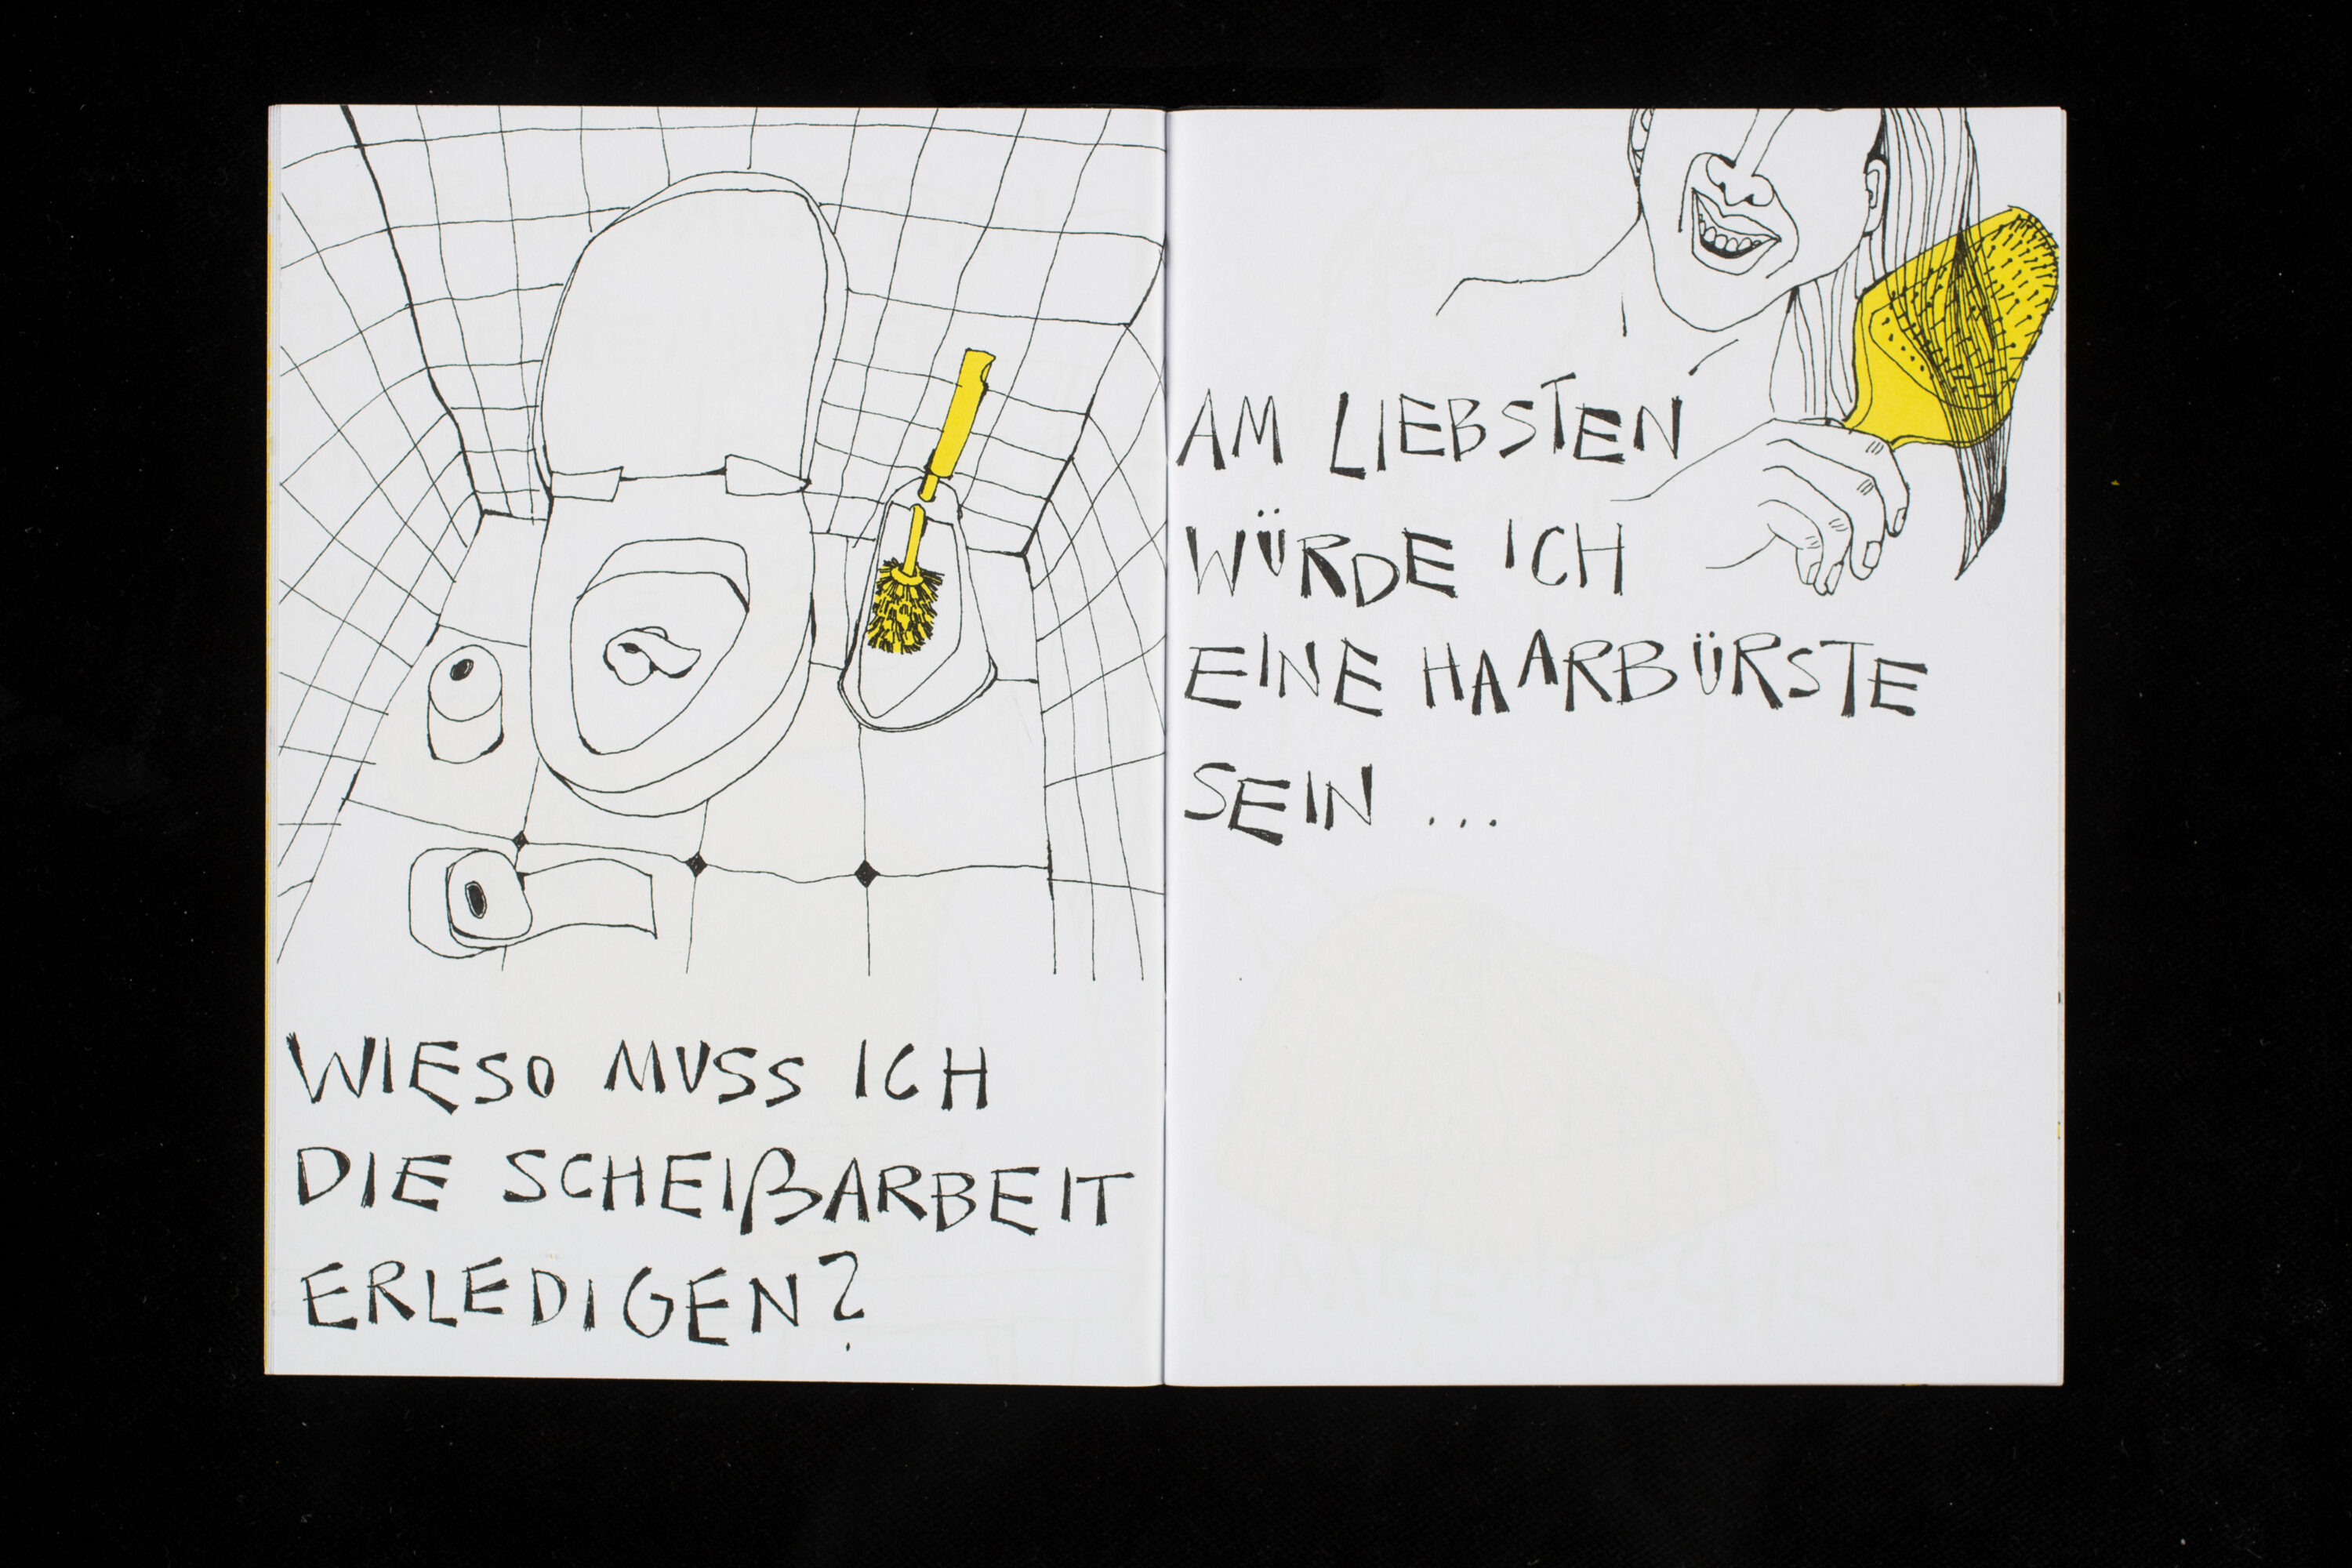 WIESO MUSS ICH
DIE SCHEIßARBEIT
ERLEDIGEN?
AM LIEBSTEN
WÜRDE ICH
EINE HAARBÜRSTE
SEIN ...